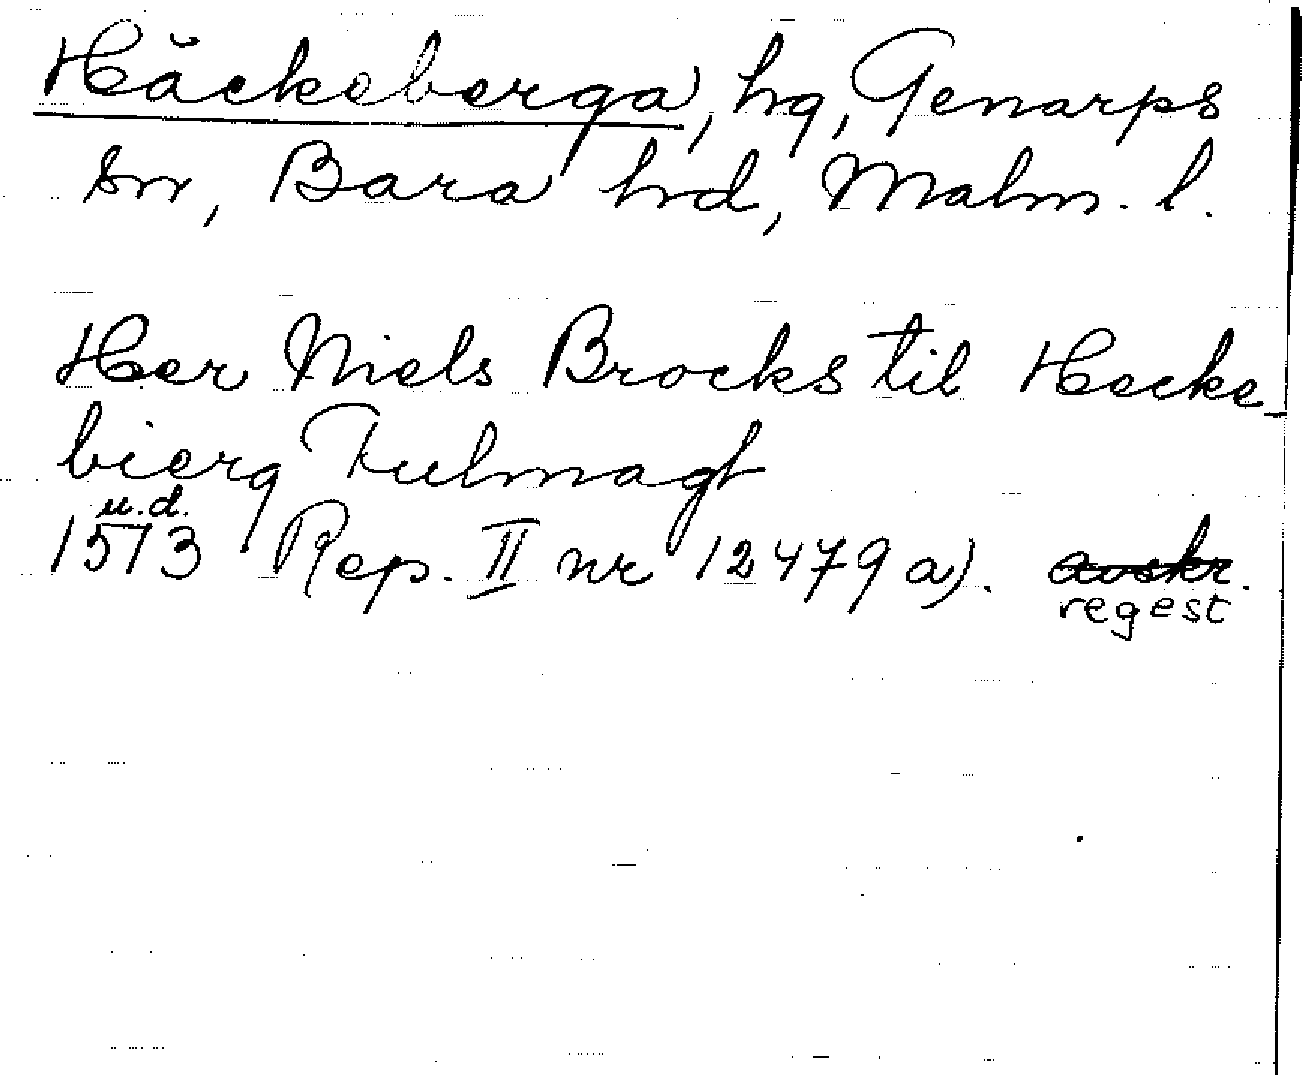 Häckeberga, hg, Genarps
sn, Bara hrd, Malm. l.
Her Niels Brocks til Hecke-
bierg Fulmagt
u.d.
1573 Rep. II nr 12479 a). avskr.
regest